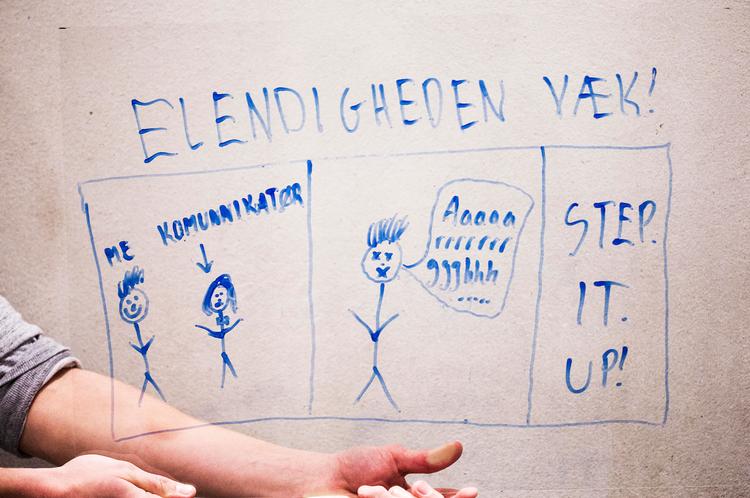 ELENDIGHEDEN VÆK!
ME
KOMUNNIKATØR
Aaaaa
rrrrrrr
ggghhh
.....
STEP.
IT.
UP!